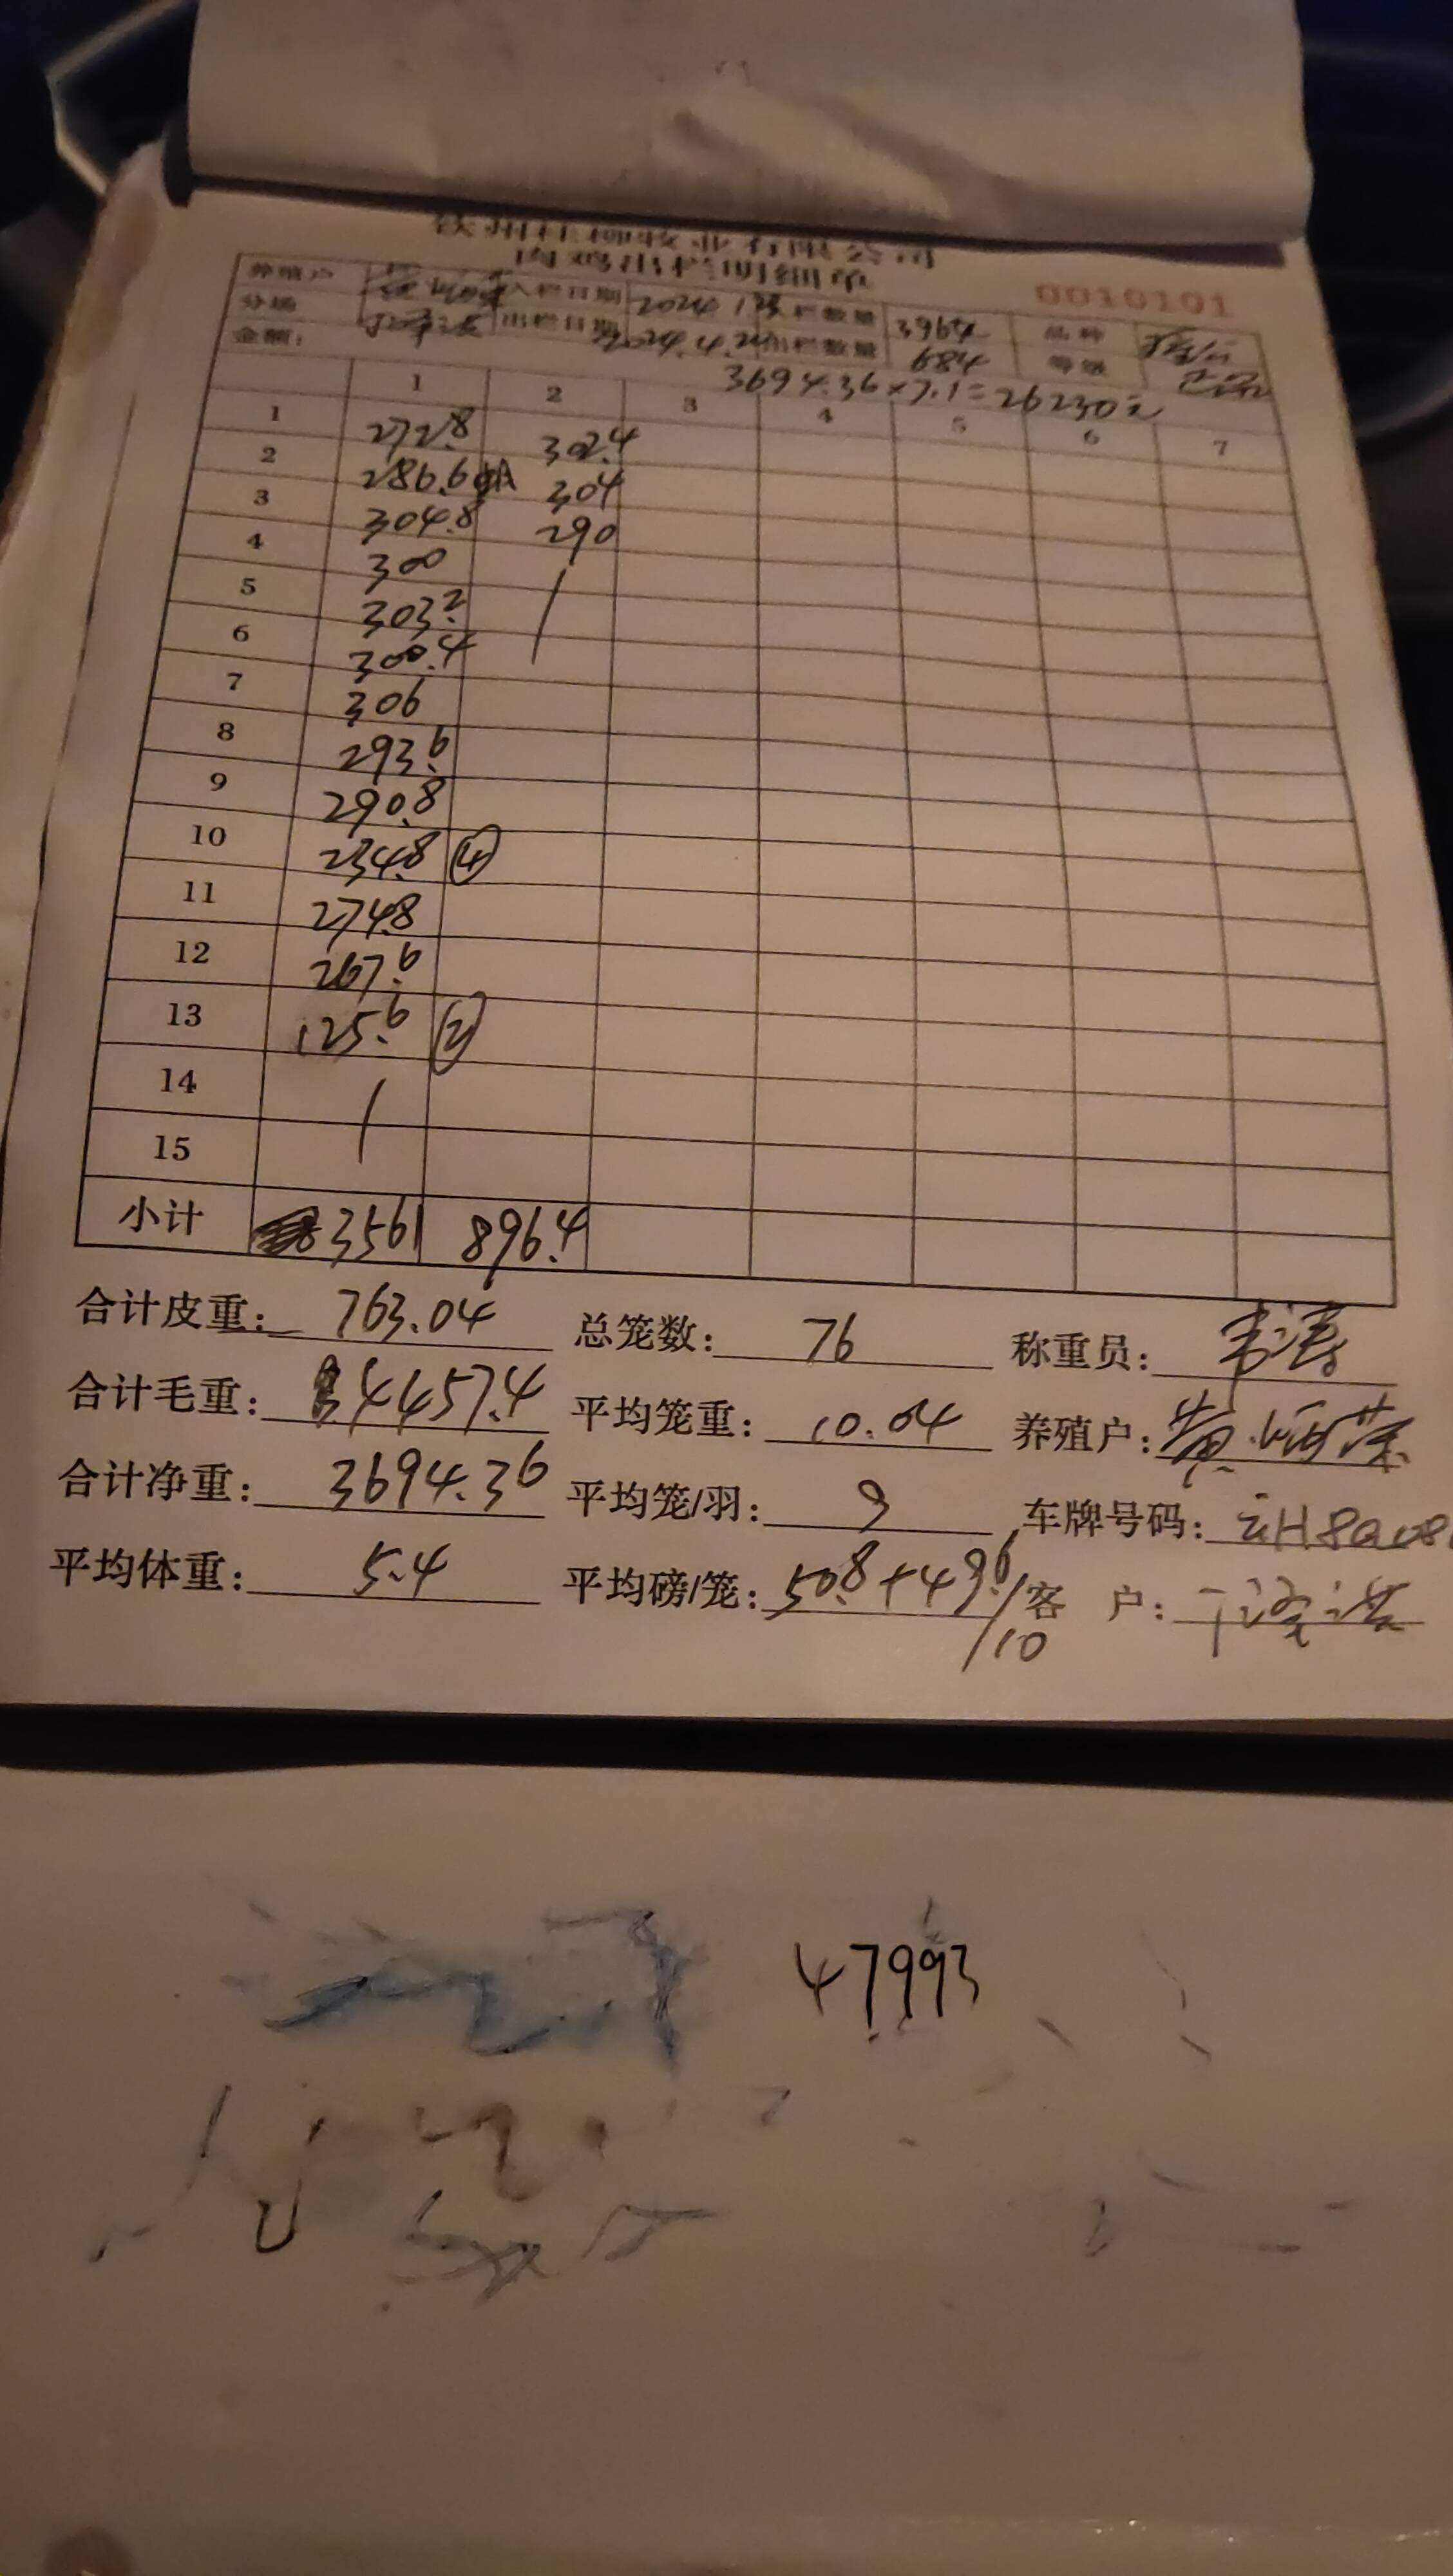 钦州桂柳牧业有限公司
肉鸡出栏明细单
0010101
养殖户 入栏日期 2024 入栏数量 3964 品种
分场 出栏日期 2024.4.2 出栏数量 684 等级
金额: 3694.36×7.1=26230元
1 2 3 4 5 6 7
1 272.8 302.4
2 286.6 304
3 304.8 290
4 300
5 303.2
6 300.4
7 306
8 293.6
9 290.8
10 234.8 ④
11 274.8
12 267.6
13 125.6 ②
14
15
小计 3561 896.4
合计皮重: 763.04 总笼数: 76 称重员: 韦涛
合计毛重: 4457.4 平均笼重: 10.04 养殖户: 黄
合计净重: 3694.36 平均笼/羽: 9 车牌号码:
平均体重: 5.4 平均磅/笼: 50.8+49.6/10 客 户:
47993